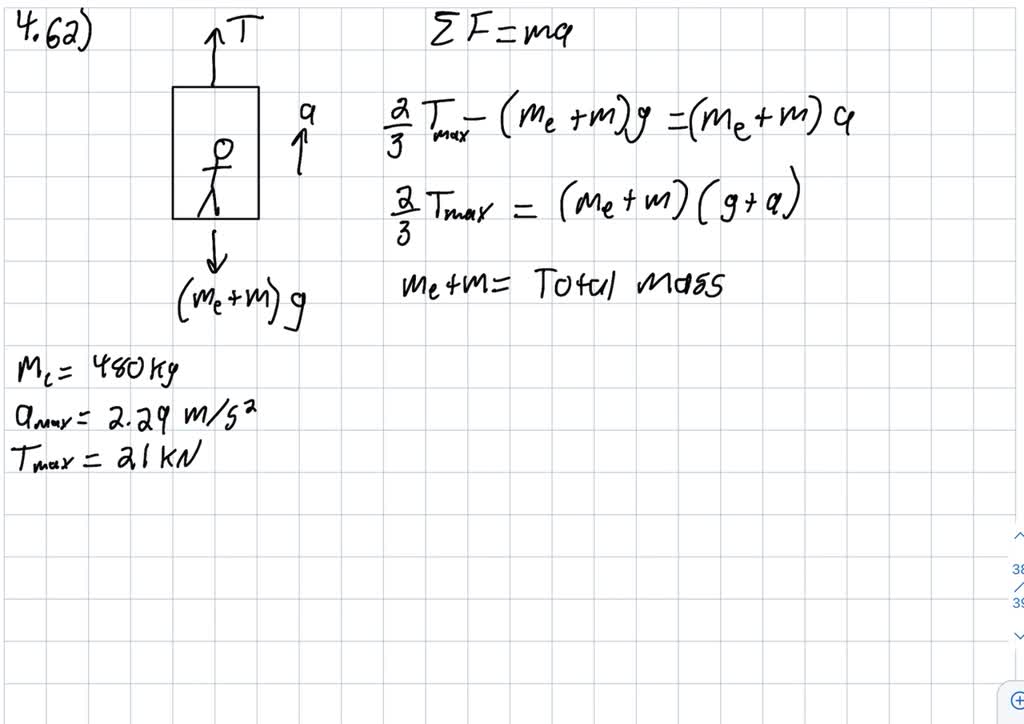 4.62)
T
ΣF=ma
a
2/3 T_max - (m_e + m)g = (m_e + m) a
2/3 T_max = (m_e + m) (g + a)
m_e + m = Total mass
(m_e + m) g
m_e = 480 kg
a_max = 2.29 m/s²
T_max = 21 kN
38
/
39